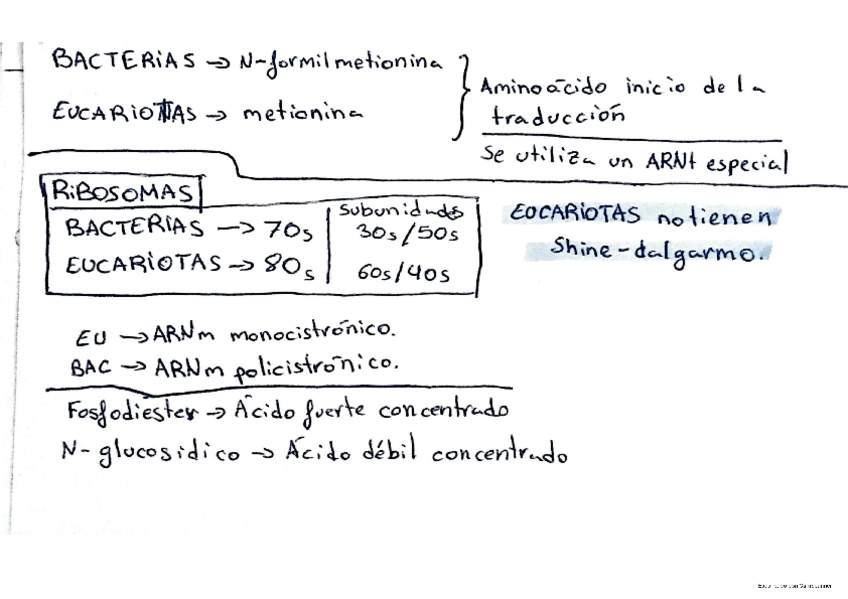 BACTERIAS → N-formilmetionina
EUCARIOTAS → metionina
Aminoácido inicio de la
traducción
Se utiliza un ARNt especial
RIBOSOMAS
Subunidades
BACTERIAS → 70s 30s/50s
EUCARIOTAS → 80s 60s/40s
EUCARIOTAS no tienen
Shine-dalgarmo.
EU → ARNm monocistrónico.
BAC → ARNm policistrónico.
Fosfodiester → Ácido fuerte concentrado
N-glucosidico → Ácido débil concentrado